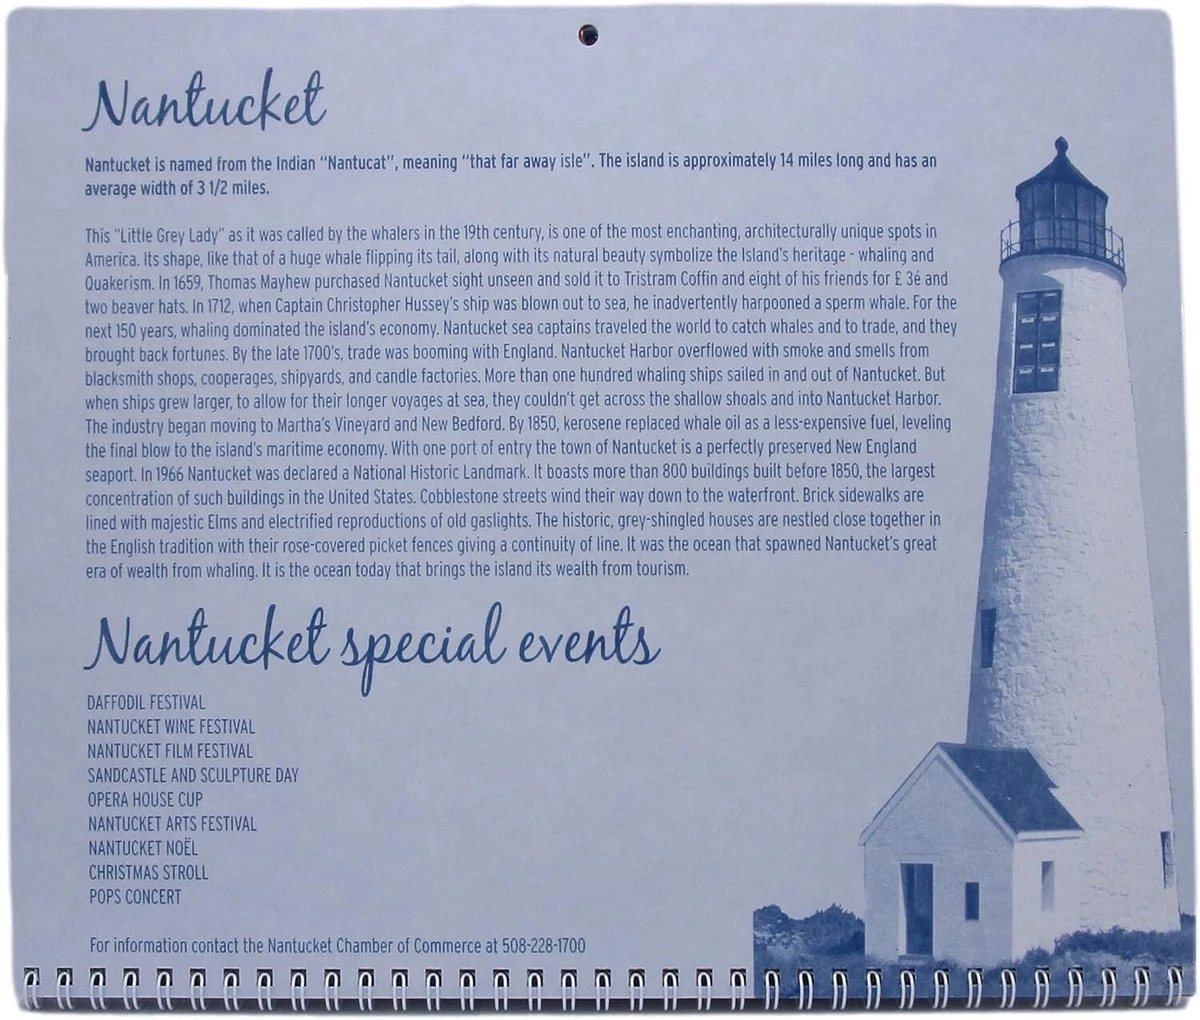 Nantucket
Nantucket is named from the Indian "Nantucat", meaning "that far away isle". The island is approximately 14 miles long and has an
average width of 3 1/2 miles.
This "Little Grey Lady" as it was called by the whalers in the 19th century, is one of the most enchanting, architecturally unique spots in
America. Its shape, like that of a huge whale flipping its tail, along with its natural beauty symbolize the Island's heritage - whaling and
Quakerism. In 1659, Thomas Mayhew purchased Nantucket sight unseen and sold it to Tristram Coffin and eight of his friends for £ 3é and
two beaver hats. In 1712, when Captain Christopher Hussey's ship was blown out to sea, he inadvertently harpooned a sperm whale. For the
next 150 years, whaling dominated the island's economy. Nantucket sea captains traveled the world to catch whales and to trade, and they
brought back fortunes. By the late 1700's, trade was booming with England. Nantucket Harbor overflowed with smoke and smells from
blacksmith shops, cooperages, shipyards, and candle factories. More than one hundred whaling ships sailed in and out of Nantucket. But
when ships grew larger, to allow for their longer voyages at sea, they couldn't get across the shallow shoals and into Nantucket Harbor.
The industry began moving to Martha's Vineyard and New Bedford. By 1850, kerosene replaced whale oil as a less-expensive fuel, leveling
the final blow to the island's maritime economy. With one port of entry the town of Nantucket is a perfectly preserved New England
seaport. In 1966 Nantucket was declared a National Historic Landmark. It boasts more than 800 buildings built before 1850, the largest
concentration of such buildings in the United States. Cobblestone streets wind their way down to the waterfront. Brick sidewalks are
lined with majestic Elms and electrified reproductions of old gaslights. The historic, grey-shingled houses are nestled close together in
the English tradition with their rose-covered picket fences giving a continuity of line. It was the ocean that spawned Nantucket's great
era of wealth from whaling. It is the ocean today that brings the island its wealth from tourism.
Nantucket special events
DAFFODIL FESTIVAL
NANTUCKET WINE FESTIVAL
NANTUCKET FILM FESTIVAL
SANDCASTLE AND SCULPTURE DAY
OPERA HOUSE CUP
NANTUCKET ARTS FESTIVAL
NANTUCKET NOËL
CHRISTMAS STROLL
POPS CONCERT
For information contact the Nantucket Chamber of Commerce at 508-228-1700